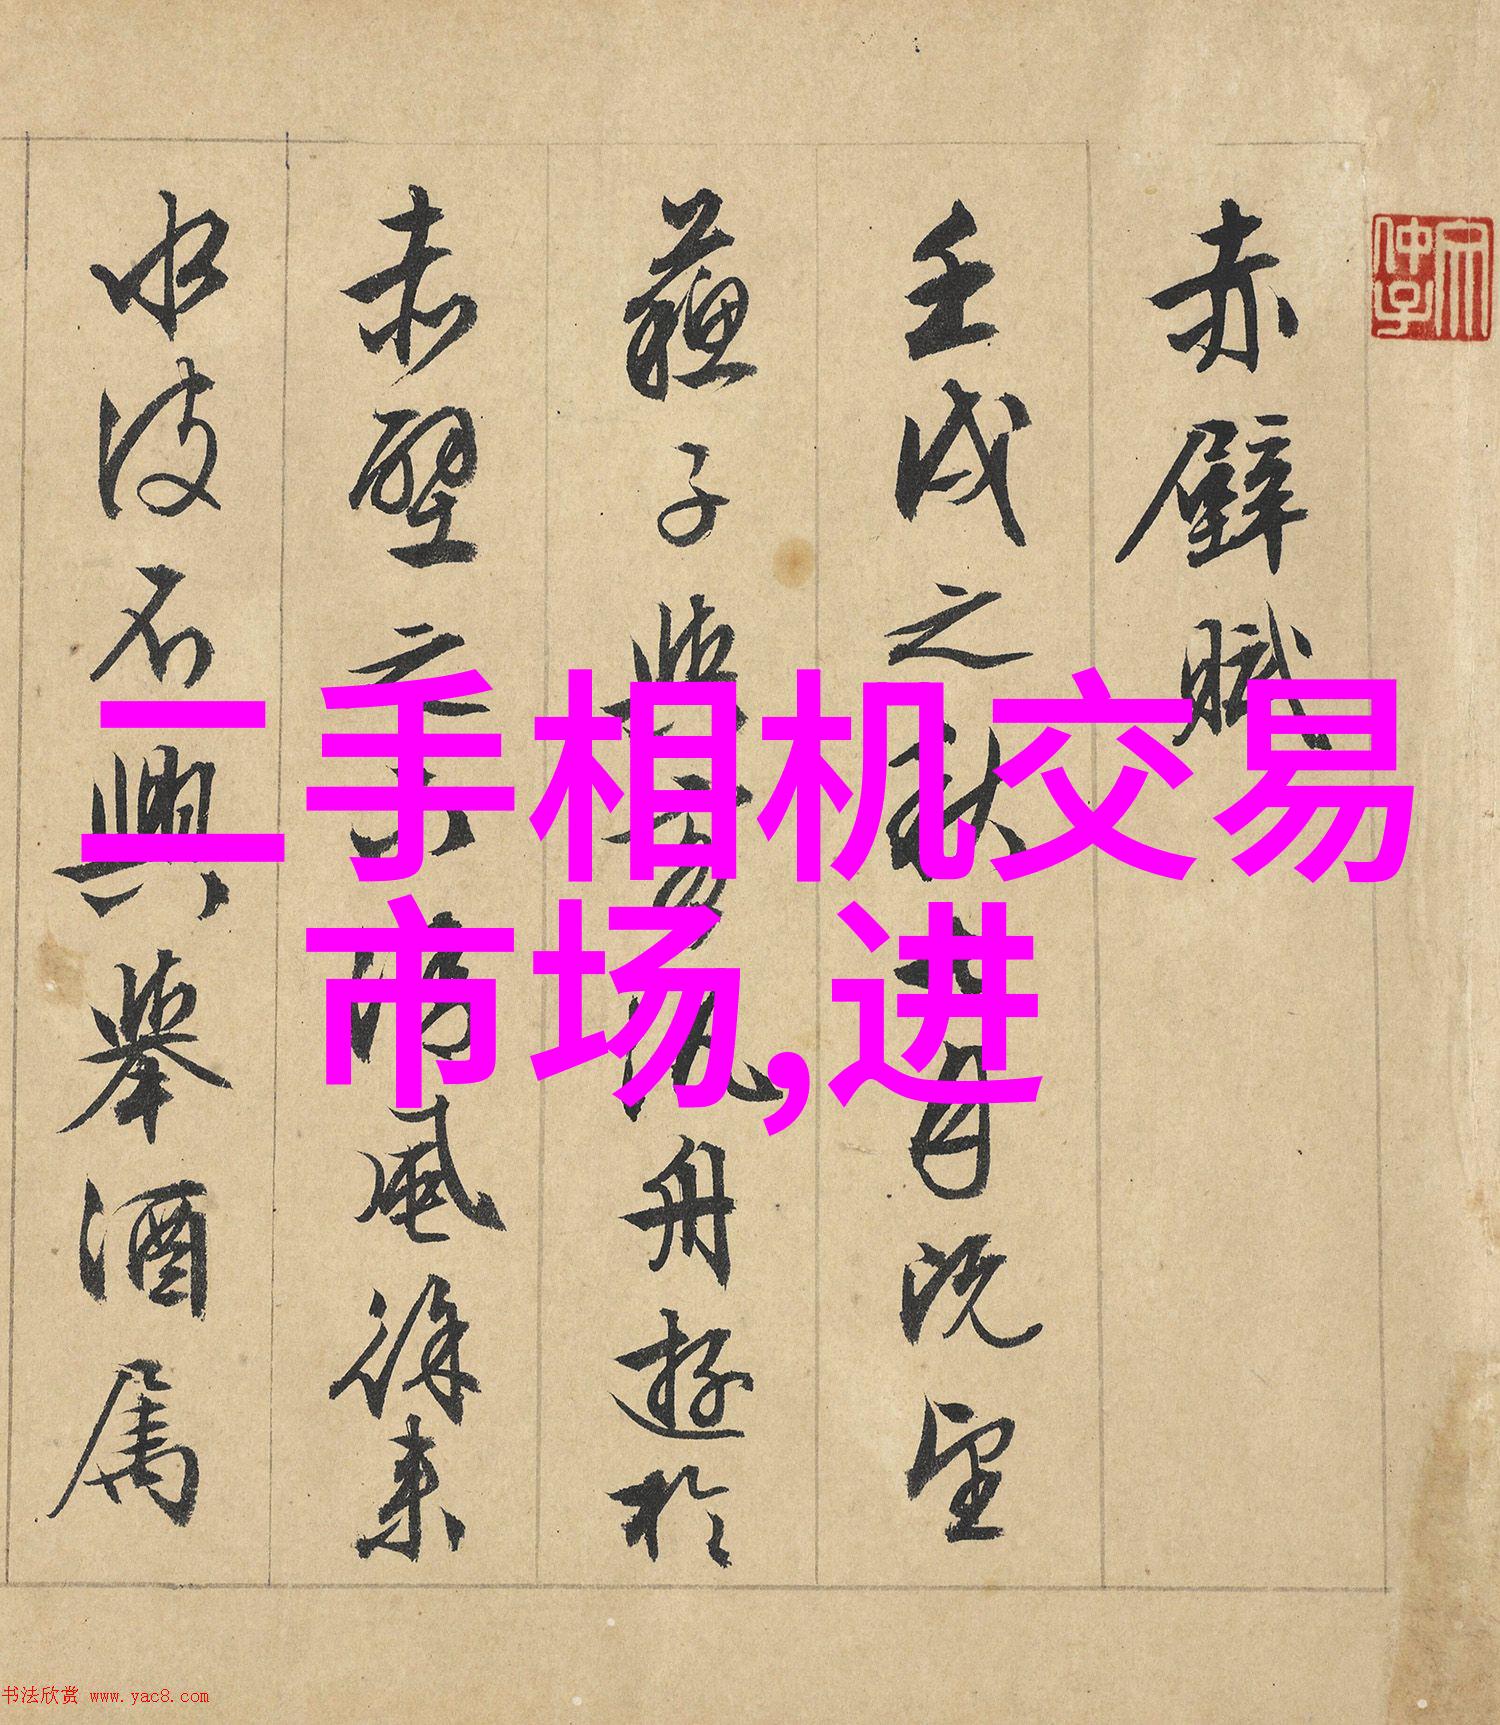 赤壁賦
壬戌之秋七月既望
蘇子與客泛舟遊於
赤壁之下清風徐來
水波不興舉酒屬
二手相机交易
市场,进
书法欣赏 www.yac8.com